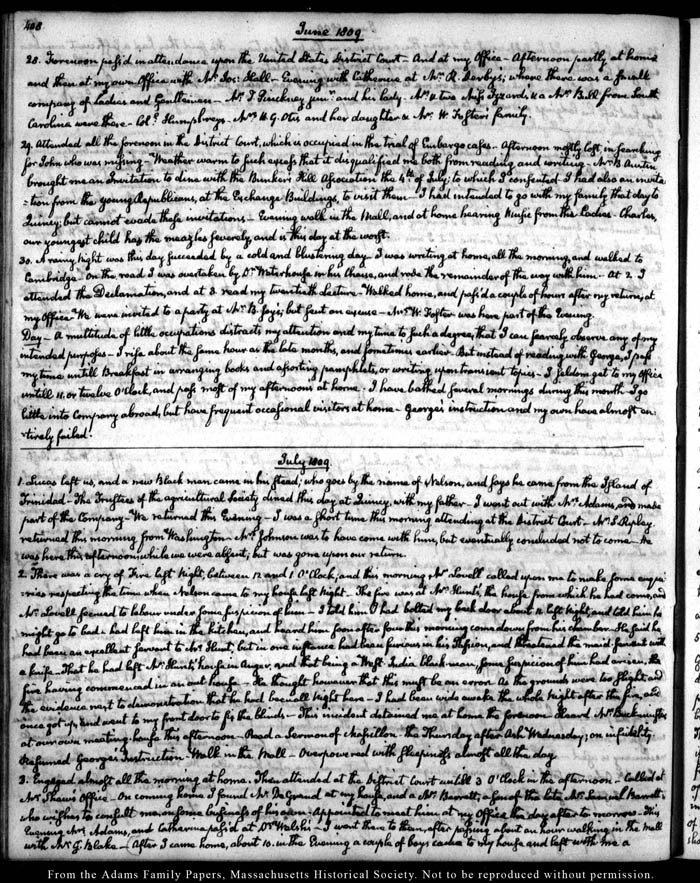 408
June 1809
28. Forenoon pass'd in attendance upon the United States District Court — And at my Office — Afternoon partly at home
and then at my own Office with Mr. Jos: Hall — Evening with Catherine at Mr. R. Derby's; where there was a small
company of Ladies and Gentlemen — Mr. T. Pinckney junr. and his lady — Mr. & two Miss Izzards, & a Mr. Bull from South
Carolina were there — Coll. Humphreys — Mrs. H. G. Otis and her daughter & Mr. W. Foster's family.
29. Attended all the forenoon in the District Court, which is occupied in the trial of Embargo cases — Afternoon mostly lost in searching
for John who was missing — Weather warm to such excess that it disqualified me both from reading, and writing — Mr. B. Austin
brought me an Invitation to dine with the Bunker Hill Association the 4th. of July; to which I consented I had also an invita
=tion from the young Republicans, at the Exchange Buildings, to visit them — I had intended to go with my family that day to
Quincy; but cannot evade these invitations — Evening walk in the Mall, and at home hearing Music from the Ladies — Charles,
our youngest child has the meazles severely, and is this day at the worst.
30. A rainy Night was this day succeeded by a cold and blustering day — I was writing at home, all the morning, and walked to
Cambridge — On the road I was overtaken by Dr. Waterhouse in his Chaise, and rode the remainder of the way with him — At 2. I
attended the Declamation, and at 3. read my twentieth Lecture — Walked home, and pass'd a couple of hours after my return, at
my Office — We were invited to a party at Mr. B. Joy's, but sent an excuse — Mrs. W. Foster was here part of the Evening.
Day — A multitude of little occupations distracts my attention and my time to such a degree, that I can scarcely observe any of my
intended purposes — I rise about the same hour as the late months, and sometimes earlier — But instead of reading with George, I pass
my time untill Breakfast in arranging books and assorting pamphlets, or writing upon transient topics — I seldom get to my Office
untill 11. or twelve O'Clock, and pass most of my afternoons at home. I have bathed several mornings during this month — I go
little into Company abroad, but have frequent occasional visitors at home — George's instruction and my own have almost en
=tirely failed!
July 1809.
1. Lucas left us, and a new Black man came in his stead; who goes by the name of Nelson, and says he came from the Island of
Trinidad — The Trustees of the agricultural Society dined this day at Quincy, with my father — I went out with Mrs. Adams, and made
part of the Company — We returned this Evening — I was a short time this morning attending at the District Court — Mr. S. Ripley
returned this morning from Washington — Mrs. Johnson was to have come with him, but eventually concluded not to come — He
was here this afternoon while we were absent; but was gone upon our return.
2. There was a cry of Fire last Night, between 12 and 1 O'Clock, and this morning Mr. Lovell called upon me to make some enqui
=ries respecting the time when Nelson came to my house last Night. The fire was at Mr. Hunt's, the house from which he had come, and
Mr. Lovell seemed to labour under some suspicion of him — I told him I had bolted my back door about 11 last Night, and told him he
might go to bed. I had left him in the kitchen, and heard him soon after four this morning come down from his chamber. He said he
had been an excellent servant to Mr. Hunt, but in one instance had been furious in his Passion, and threatened the maid-servant with
a knife — That he had left Mr. Hunt's house in Anger, and that being a West-India black man, some suspicion of him had arisen, the
fire having commenced in an out house — He thought however that this must be an error. As the grounds were too slight, and
the evidence next to demonstration that he had been all Night here — I had been wide awake the whole Night after the fire, and
once got up, and went to my front door to fix the blinds — This incident detained me at home the forenoon — Heard Mr. Buckminster
at our own meeting-house this afternoon — Read a Sermon of Massillon. the Thursday after Ash Wednesday; on infidelity.
Resumed George's Instruction — Walk in the Mall — Overpowered with sleepiness almost all the day.
3. Engaged almost all the morning at home. Then attended at the District Court untill 3 O'Clock in the afternoon — Called at
Mr. Shaw's Office — On coming home I found Mr. De Grand at my house, and a Mr. Barrett, a son of the late Mr. Samuel Barrett,
who wishes to consult me, on some business of his own — Appointed to meet him at my Office the day after to morrow — This
Evening Mrs. Adams, and Catherine pass'd at Dr. Welsh's — I went there to them, after passing about an hour walking in the Mall
with Mr. G. Blake — After I came home, about 10. in the Evening a couple of boys came to my house and left with me a
From the Adams Family Papers, Massachusetts Historical Society. Not to be reproduced without permission.